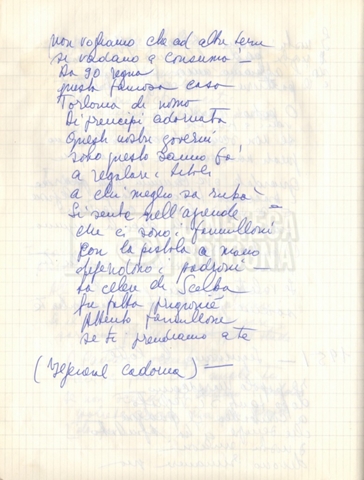 non vogliamo che ad altre terre
si vadano a consumà –
Da 90 regna
questa famosa casa
Torlonia di nome
Di principi adornata
Questi nostri governi
solo questo sanno fà
a regalare i titoli
a chi meglio sa rubà –
Si sente nell'aziende –
che ci sono i fannulloni
con la pistola a mano
difendono i padroni –
La celere di Scelba
fu fatta prigionie
Attento fannullone
se ti prendiamo a te
( Cadorna ) —